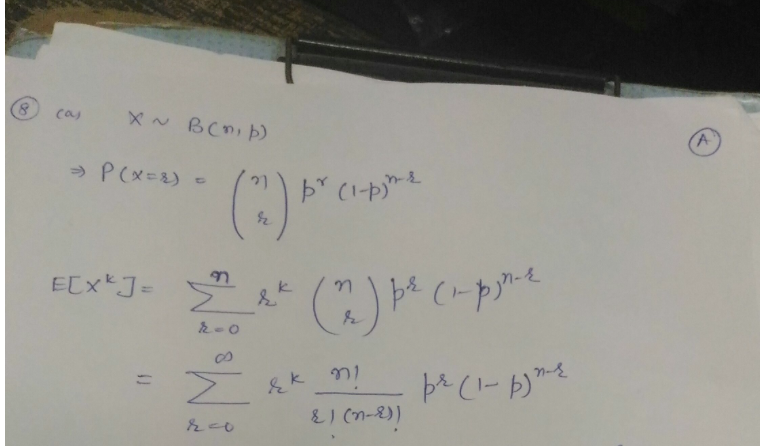 ⑧ (a) X ~ B(n, p) Ⓐ
⇒ P(X=r) = \binom{n}{r} p^r (1-p)^{n-r}
E[X^k] = \sum_{r=0}^{n} r^k \binom{n}{r} p^r (1-p)^{n-r}
= \sum_{r=0}^{∞} r^k \frac{n!}{r!(n-r)!} p^r (1-p)^{n-r}